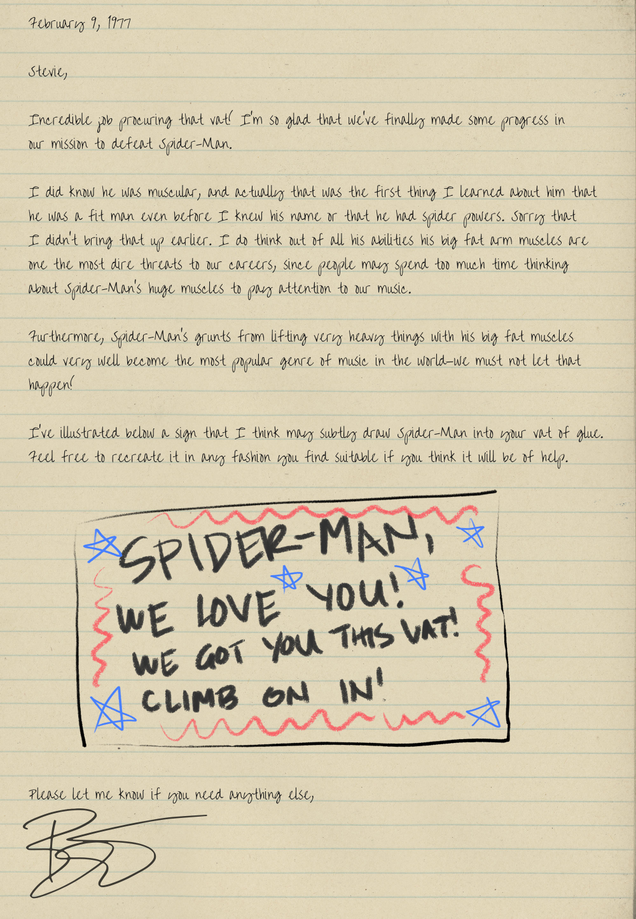 February 9, 1977
Stevie,
Incredible job procuring that vat! I'm so glad that we've finally made some progress in
our mission to defeat Spider-Man.
I did know he was muscular, and actually that was the first thing I learned about him that
he was a fit man even before I knew his name or that he had spider powers. Sorry that
I didn't bring that up earlier. I do think out of all his abilities his big fat arm muscles are
one the most dire threats to our careers, since people may spend too much time thinking
about Spider-Man's huge muscles to pay attention to our music.
Furthermore, Spider-Man's grunts from lifting very heavy things with his big fat muscles
could very well become the most popular genre of music in the world—we must not let that
happen!
I've illustrated below a sign that I think may subtly draw Spider-Man into your vat of glue.
Feel free to recreate it in any fashion you find suitable if you think it will be of help.
SPIDER-MAN,
WE LOVE YOU!
WE GOT YOU THIS VAT!
CLIMB ON IN!
Please let me know if you need anything else,